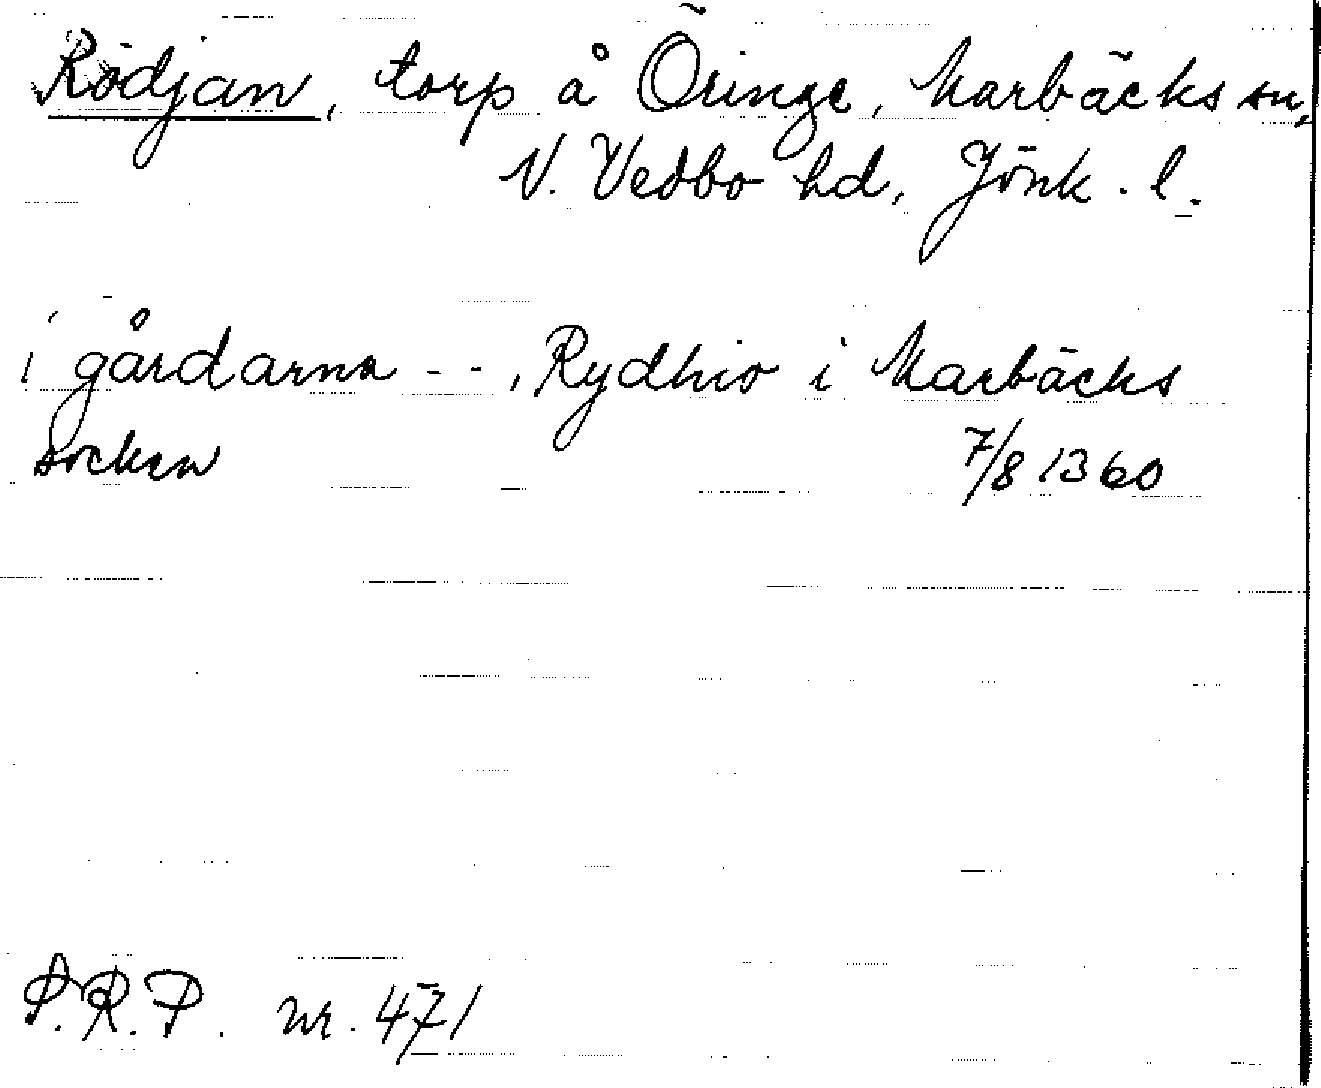 Rödjan, torp å Öringe, Marbäcks sn,
N. Vedbo hd, Jönk. l.
i gårdarna - - , Rydhio i Marbäcks
socken 7/8 1360
S.R.P. nr. 471